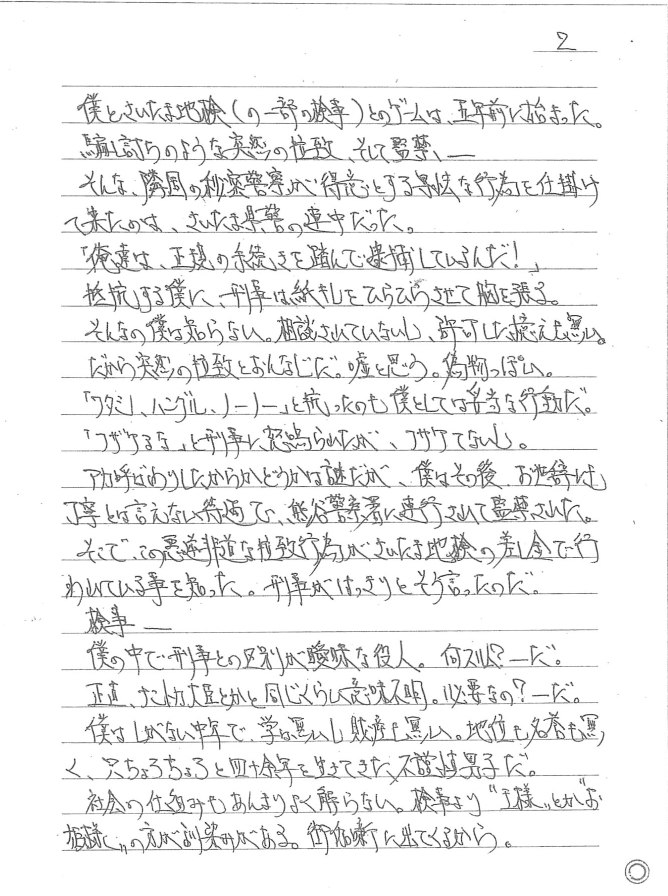 2
僕とさいたま地検(の一部の検事)とのゲームは、五年前に始まった。
騙し討ちのような突然の拉致、そして監禁、―
そんな、隣国の秘密警察が得意とする卑怯な行為を仕掛け
て来たのは、さいたま県警の連中だった。
「俺達は、正規の手続きを踏んで逮捕しているんだ!」
抵抗する僕に、刑事は紙キレをひらひらさせて胸を張る。
そんなの僕は知らない。相談されていないし、許可した憶えも無い。
だから突然の拉致とおんなじだ。嘘と思う。偽物っぽい。
「ワタシ、ハングル、ノーノー」と抗ったのも僕としては正当な行動だ。
「フザケるな」と刑事に怒鳴られたが、フザケてないし。
アカ呼ばわりしたからかどうかは謎だが、僕はその後、お世辞にも
丁寧とは言えない待遇で、熊谷警察署に連行されて監禁された。
そこで、この悪逆非道な拉致行為がさいたま地検の差し金で行
われている事を知った。刑事がはっきりとそう言ったのだ。
検事―
僕の中で刑事との区別が曖昧な役人。何スル人?―だ。
正直、ナントカ大臣とかと同じくらい意味不明。必要なの?―だ。
僕はしがない中年で、学は無いし財産も無い。地位も名誉も無
く、只ちょろちょろと四十余年を生きてきた不謹慎男子だ。
社会の仕組みもあんまりよく解らない。検事より“王様”とか“お
姫様”の方が馴染みがある。御伽噺に出てくるから。